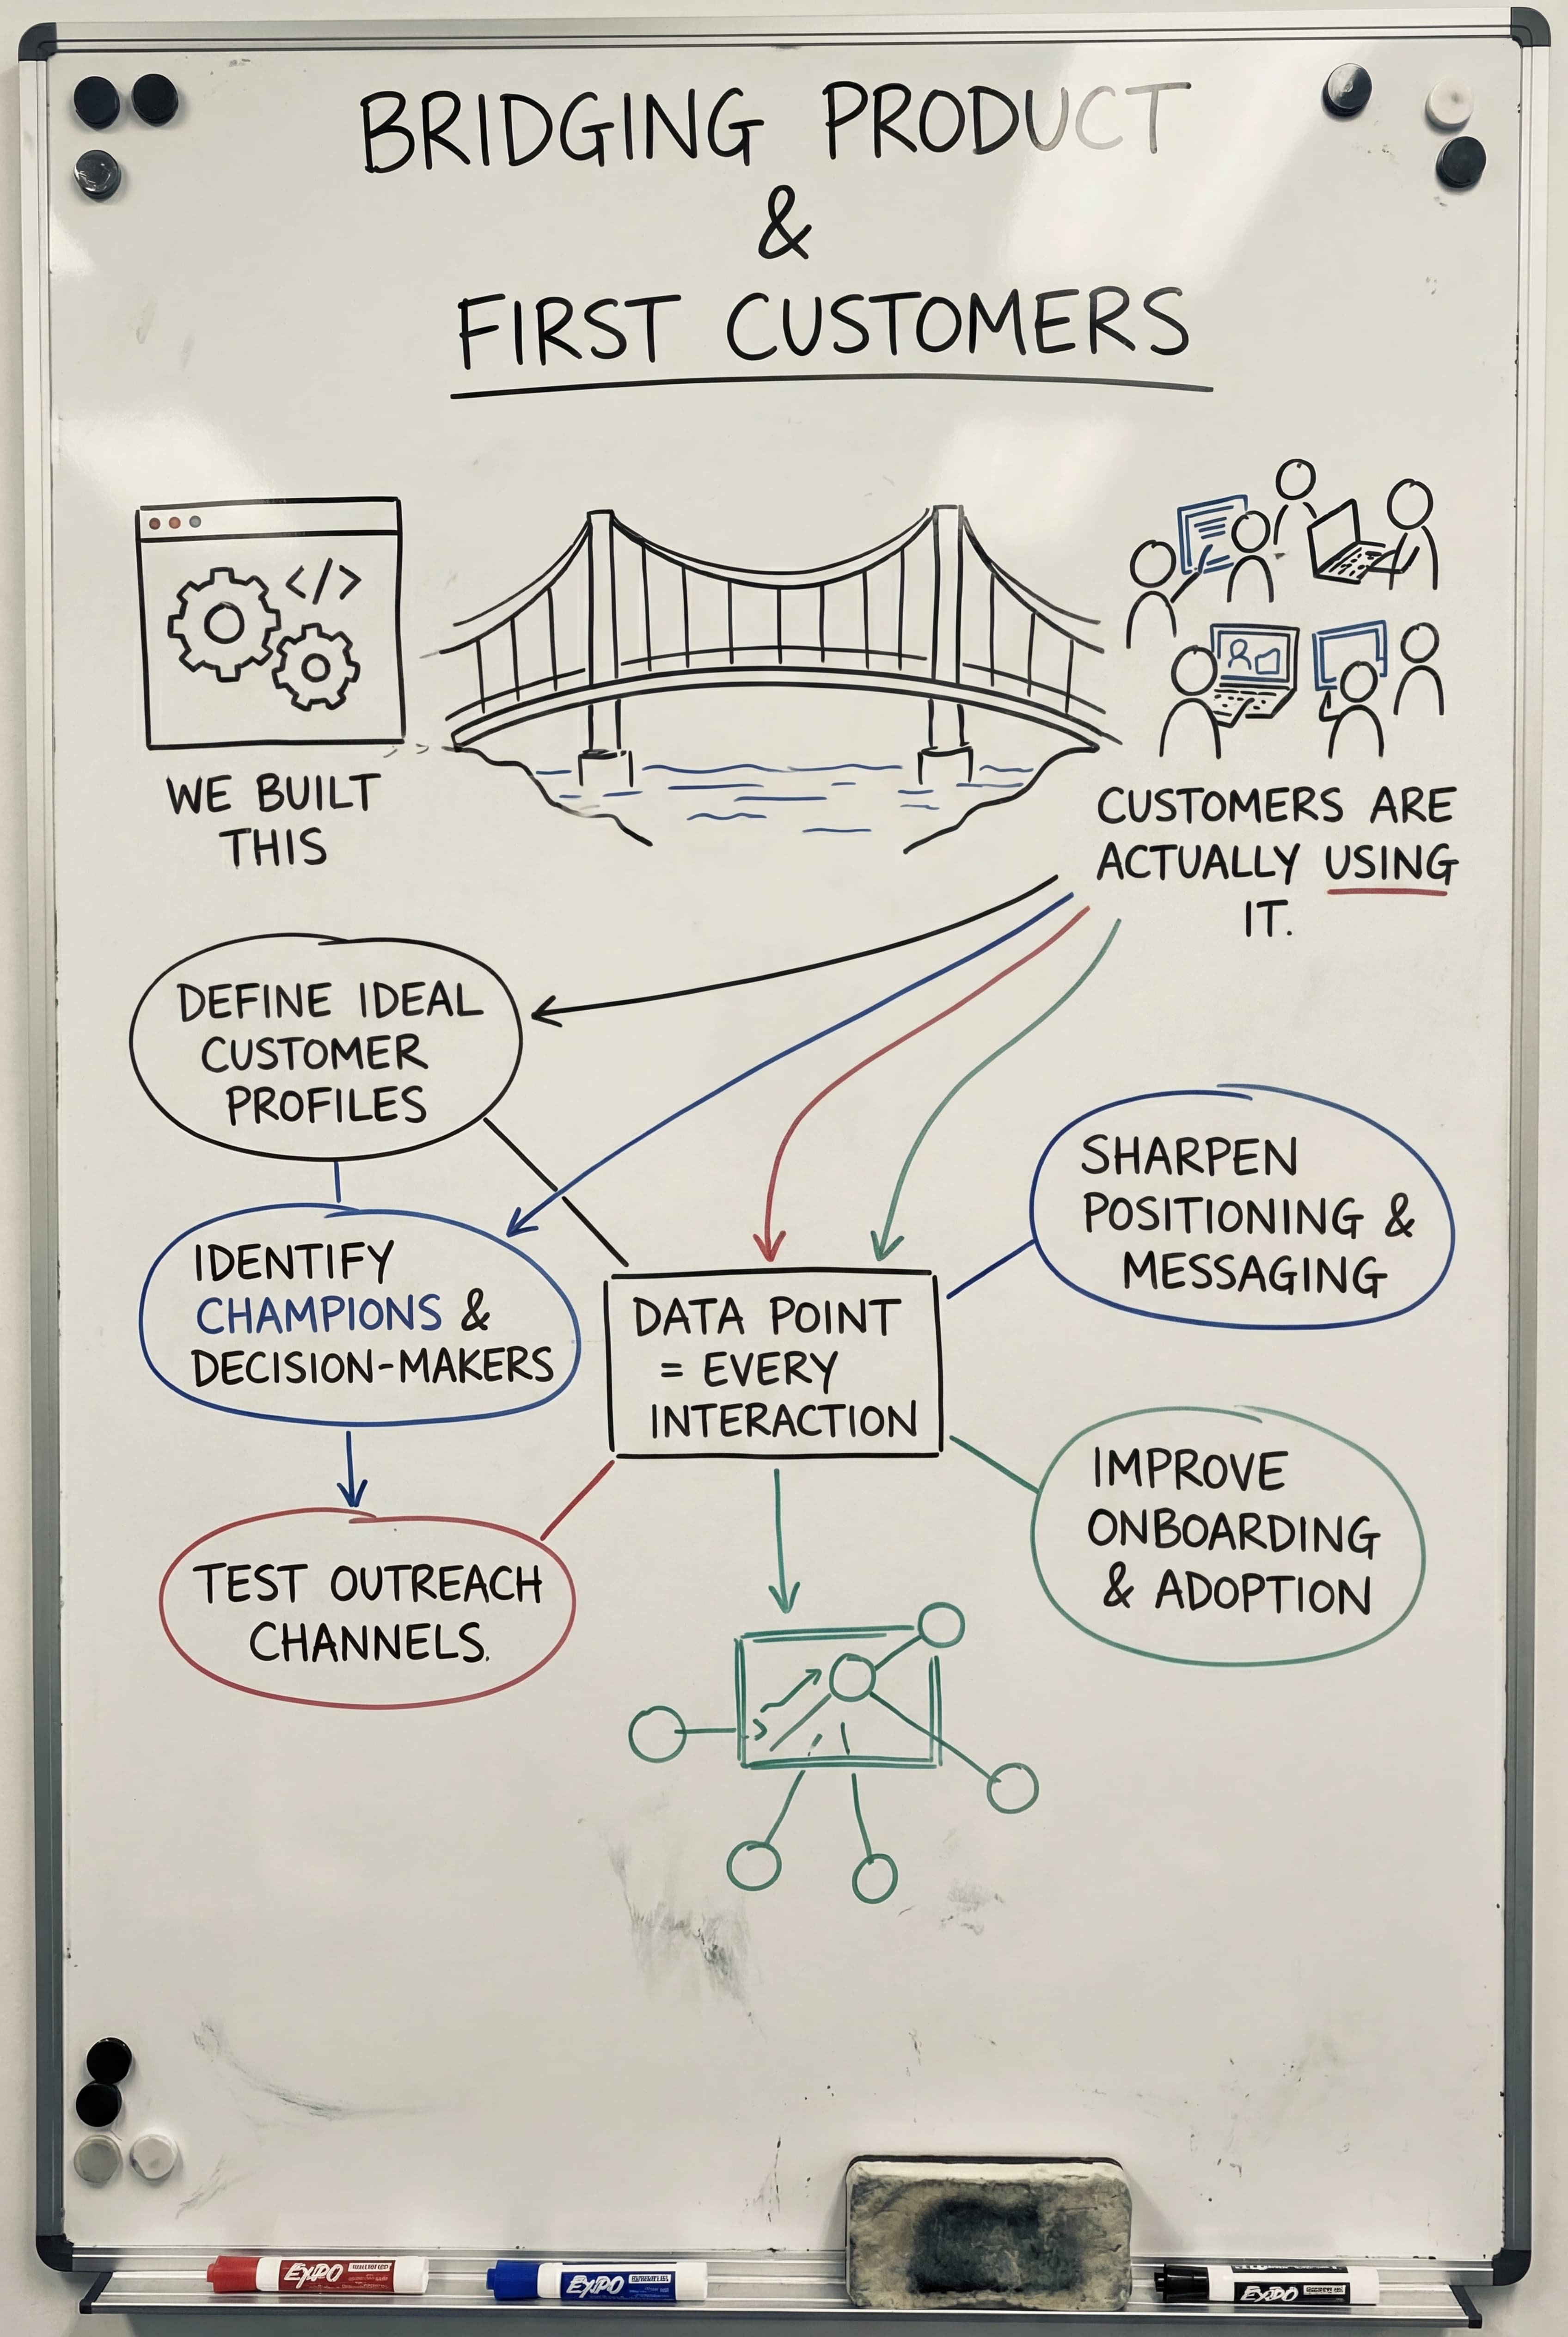 BRIDGING PRODUCT
&
FIRST CUSTOMERS
</>
WE BUILT
THIS
CUSTOMERS ARE
ACTUALLY USING
IT.
DEFINE IDEAL
CUSTOMER
PROFILES
IDENTIFY
CHAMPIONS &
DECISION-MAKERS
TEST OUTREACH
CHANNELS.
DATA POINT
= EVERY
INTERACTION
SHARPEN
POSITIONING &
MESSAGING
IMPROVE
ONBOARDING
& ADOPTION
EXPO
EXPO
EXPO